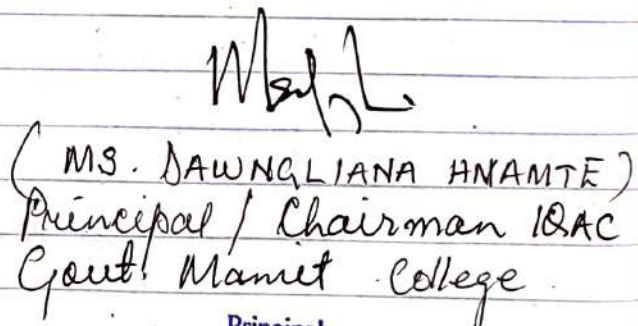 ( MS. DAWNGLIANA HNAMTE )
Principal / Chairman IQAC
Govt. Mamit College.
Principal